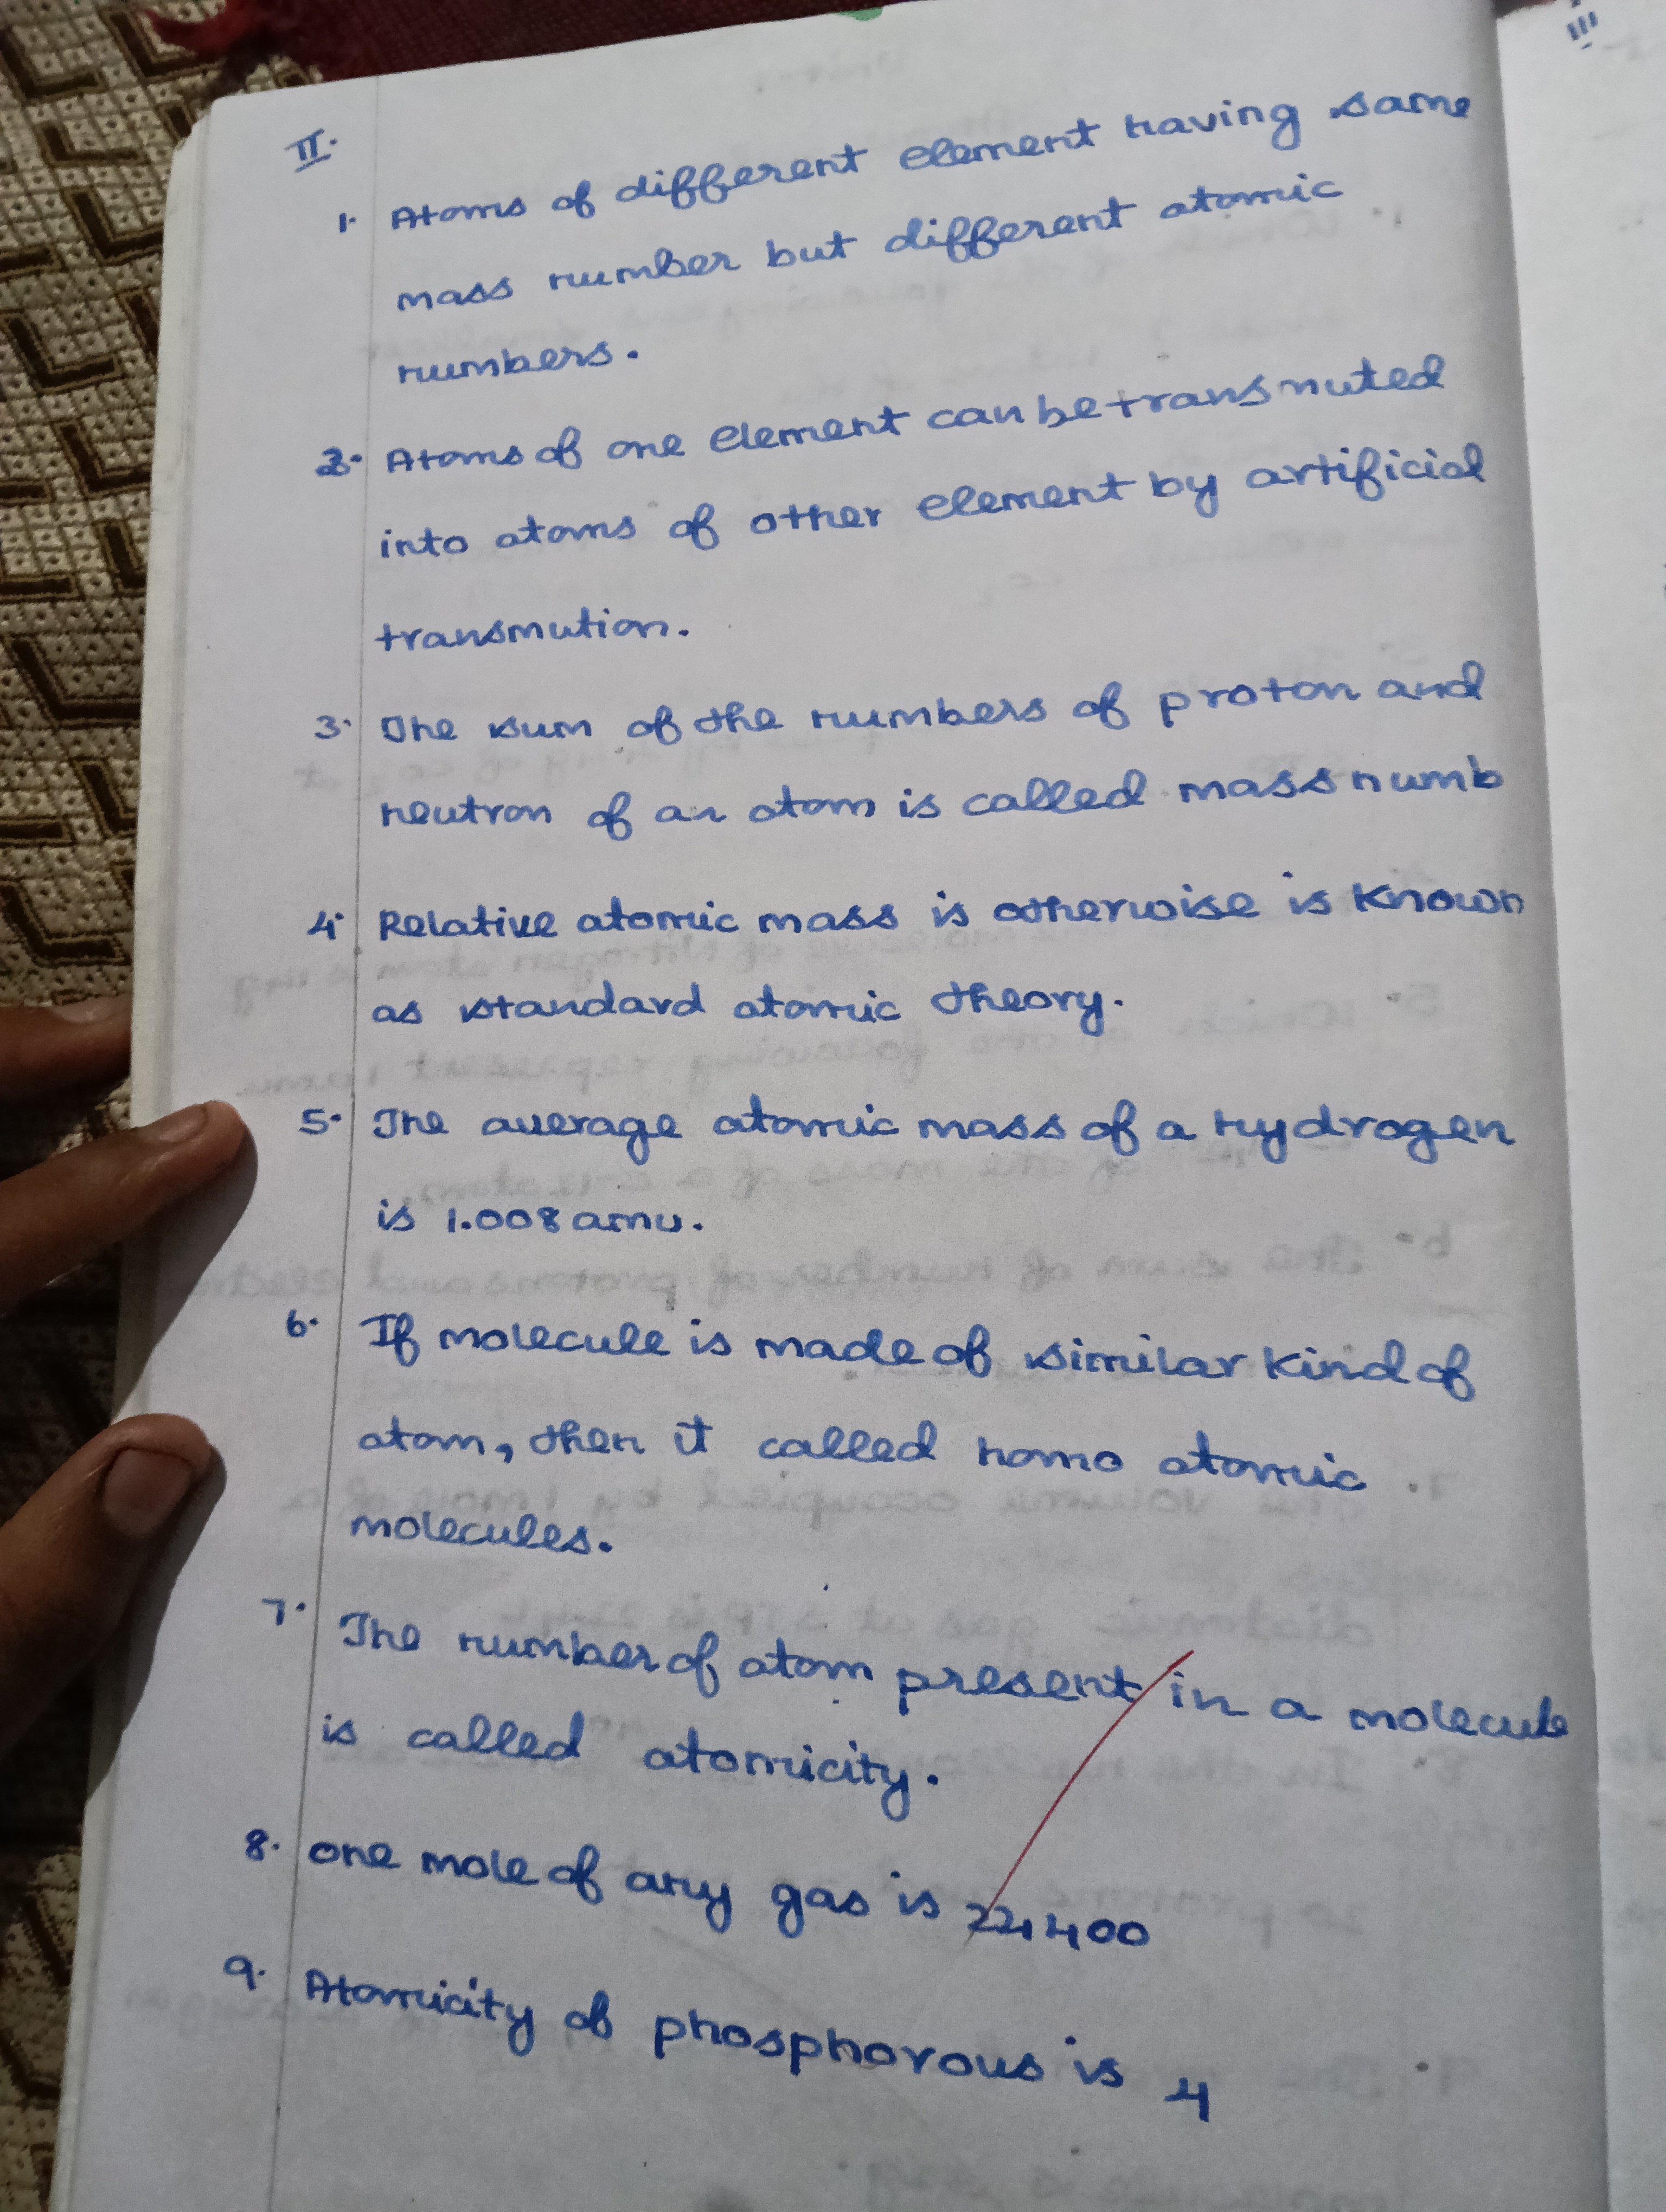 II.
1. Atoms of different element having same
mass number but different atomic
numbers.
2. Atoms of one element can be transmuted
into atoms of other element by artificial
transmution.
3. The sum of the numbers of proton and
neutron of an atom is called mass numb
4. Relative atomic mass is otherwise is known
as standard atomic theory.
5. The average atomic mass of a hydrogen
is 1.008 amu.
6. If molecule is made of similar kind of
atom, then it called homo atomic
molecules.
7. The number of atom present in a molecule
is called atomicity.
8. one mole of any gas is 22400
9. Atomicity of phosphorous is 4
III